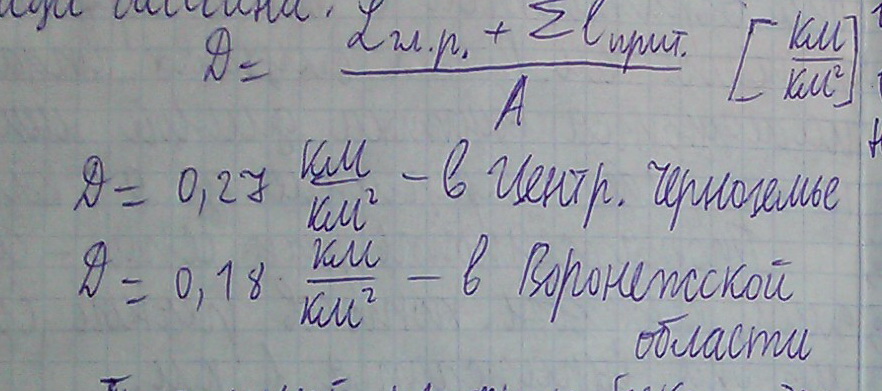 бассина.
D = (L гл.р. + Σ l прит.) / A [км/км²]
D = 0,27 км/км² – в Центр. Черноземье
D = 0,18 км/км² – в Воронежской
области